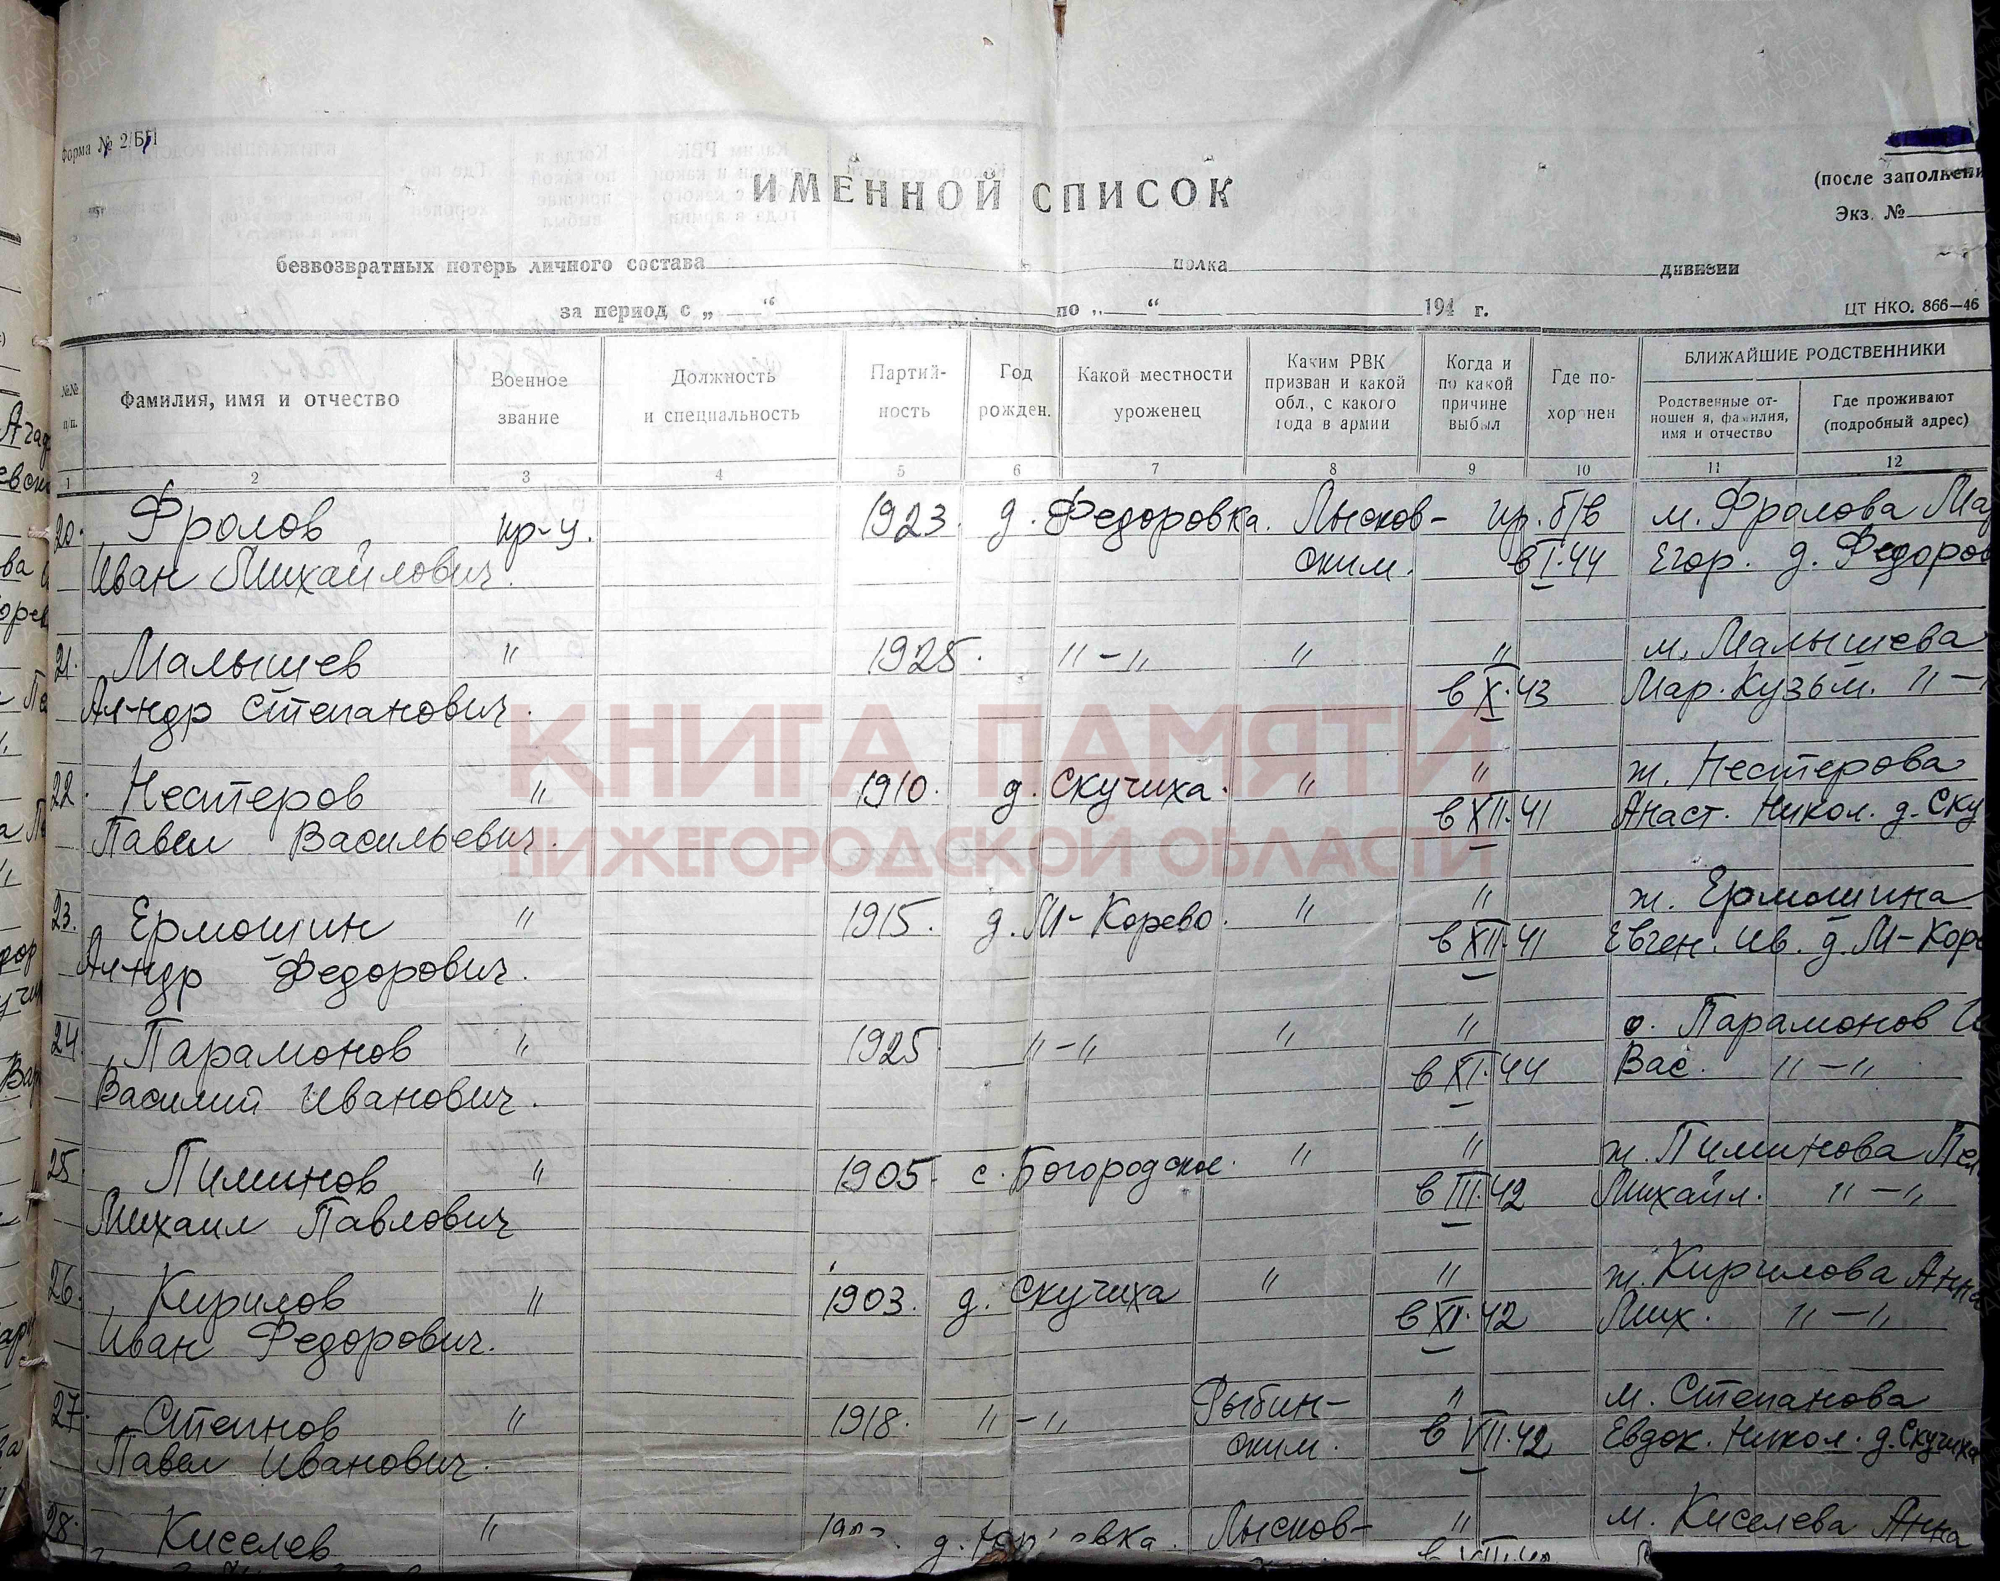 Форма № 2/БП
ИМЕННОЙ СПИСОК
(после заполнени
Экз. №
безвозвратных потерь личного состава полка дивизии
за период с „ “ по „ “ 194 г.
ЦТ НКО. 866—46
№№ п/п.
Фамилия, имя и отчество
Военное звание
Должность и специальность
Партий-
ность
Год рожден.
Какой местности уроженец
Каким РВК
призван и какой
обл., с какого
года в армии
Когда и
по какой
причине
выбыл
Где по-
хоронен
БЛИЖАЙШИЕ РОДСТВЕННИКИ
Родственные от-
ношения, фамилия,
имя и отчество
Где проживают
(подробный адрес)
1 2 3 4 5 6 7 8 9 10 11 12
20. Фролов кр-ц. 1923. д. Федоровка. Лысков- пр. б/в м. Фролова Мар
Иван Михайлович. ским. в I.44 Егор. д. Федоров
21. Малышев " 1925. "-" " " м. Малышева
Ал-ндр Степанович. в X.43 Мар. Кузьм. "-"
22. Нестеров " 1910. д. Скучиха. " " ж. Нестерова
Павел Васильевич. в XII.41 Анаст. Никол. д. Ску
23. Ермошин " 1915. д. М-Корево. " " ж. Ермошина
Ал-ндр Федорович. в XII.41 Евген. Ив. д. М-Коре
24. Парамонов " 1925 "-" " " о. Парамонов И
Василий Иванович. в XI.44 Вас. "-"
25 Пиминов " 1905. с. Богородское. " " ж. Пиминова Пел
Михаил Павлович в III.42 Михайл. "-"
26. Кирилов " 1903. д. Скучиха " " ж. Кирилова Анна
Иван Федорович. в XI.42 Мих. "-"
27. Степнов " 1918. "-" Рыбин- " м. Степанова
Павел Иванович. ским. в VII.42 Евдок. Никол. д. Скучиха
28. Киселев " д. Лысков- " м. Киселева Анна
КНИГА ПАМЯТИ
НИЖЕГОРОДСКОЙ ОБЛАСТИ